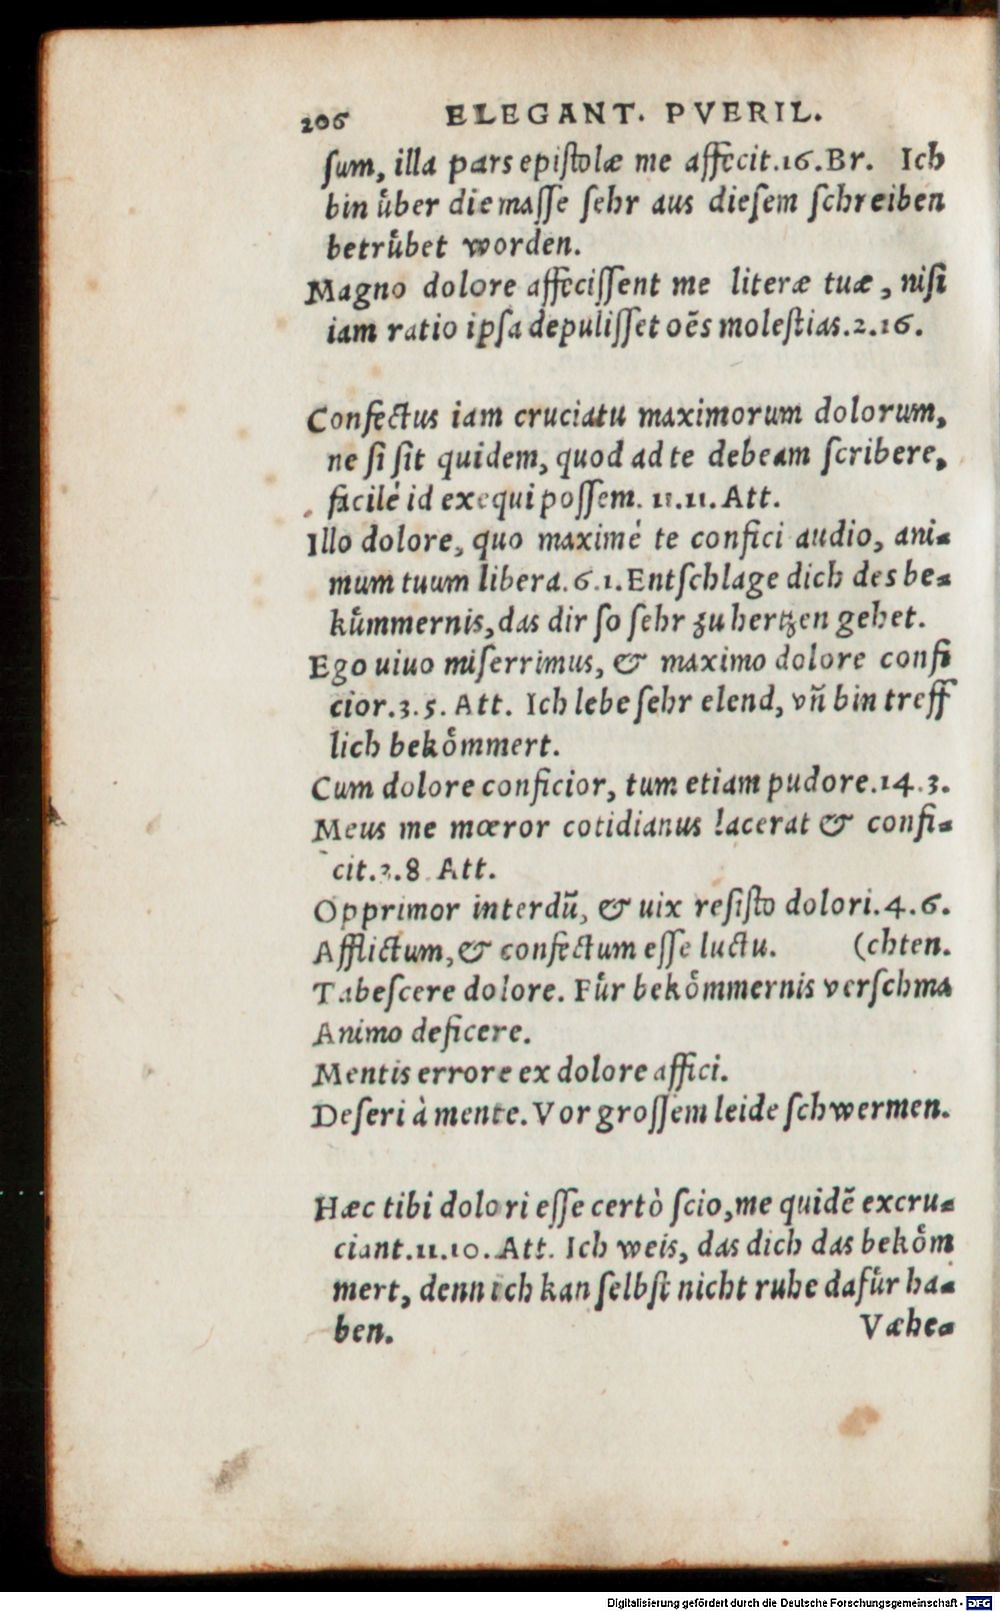 206 ELEGANT. PVERIL.
ſum, illa pars epiſtolæ me affecit.16.Br. Ich
bin uͤber die maſſe ſehr aus dieſem ſchreiben
betruͤbet worden.
Magno dolore affeciſſent me literæ tuæ, niſi
iam ratio ipſa depuliſſet oẽs moleſtias.2.16.
Confectus iam cruciatu maximorum dolorum,
ne ſi ſit quidem, quod ad te debeam ſcribere,
facilé id exequi poſſem. 11.11. Att.
Illo dolore, quo maximé te confici audio, ani-
mum tuum libera.6.1.Entſchlage dich des be-
kuͤmmernis,das dir ſo ſehr zu hertzen gehet.
Ego uiuo miſerrimus, & maximo dolore confi
cior.3.5. Att. Ich lebe ſehr elend, vñ bin treff
lich bekoͤmmert.
Cum dolore conficior, tum etiam pudore.14.3.
Meus me mœror cotidianus lacerat & confi-
cit.3.8 Att.
Opprimor interdũ, & uix reſiſto dolori.4.6.
Afflictum,& confectum eſſe luctu. (chten.
Tabeſcere dolore. Fuͤr bekoͤmmernis verſchma
Animo deficere.
Mentis errore ex dolore affici.
Deſeri à mente. Vor groſſem leide ſchwermen.
Hæc tibi dolori eſſe certò ſcio,me quidẽ excru-
ciant.11.10. Att. Ich weis, das dich das bekoͤm
mert, denn ich kan ſelbſt nicht ruhe dafuͤr ha-
ben. Væhe-
Digitalisierung gefördert durch die Deutsche Forschungsgemeinschaft - DFG